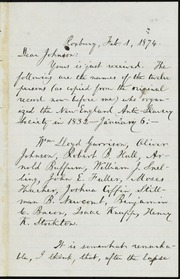 Roxbury, Feb. 1, 1874.
Dear Johnson:
Yours is just received. The
following are the names of the twelve
persons (as copied from the original
record now before me) who organ-
ized the New England Anti-Slavery
Society in 1832—January 6:—
Wm. Lloyd Garrison, Oliver
Johnson, Robert B. Hall, Ar-
nold Buffum, William J. Snel-
ling, John E. Fuller, Moses
Thacher, Joshua Coffin, Still-
man B. Newcomb, Benjamin
C. Bacon, Isaac Knapp, Henry
K. Stockton.
It is somewhat remarka-
ble, I think, that, after the lapse